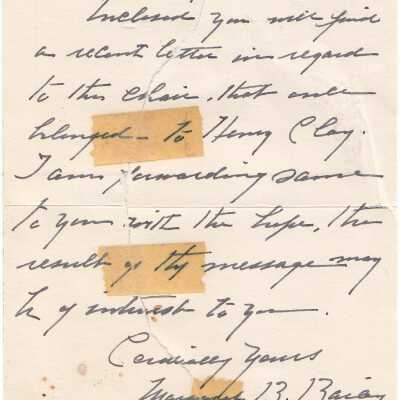 Inclosed you will find
a recent letter in regard
to this chair, that once
belonged - to Henry Clay.
I am forwarding same
to you with the hope, the
result of thy message may
be of interest to you.
Cordially Yours
Margaret B.